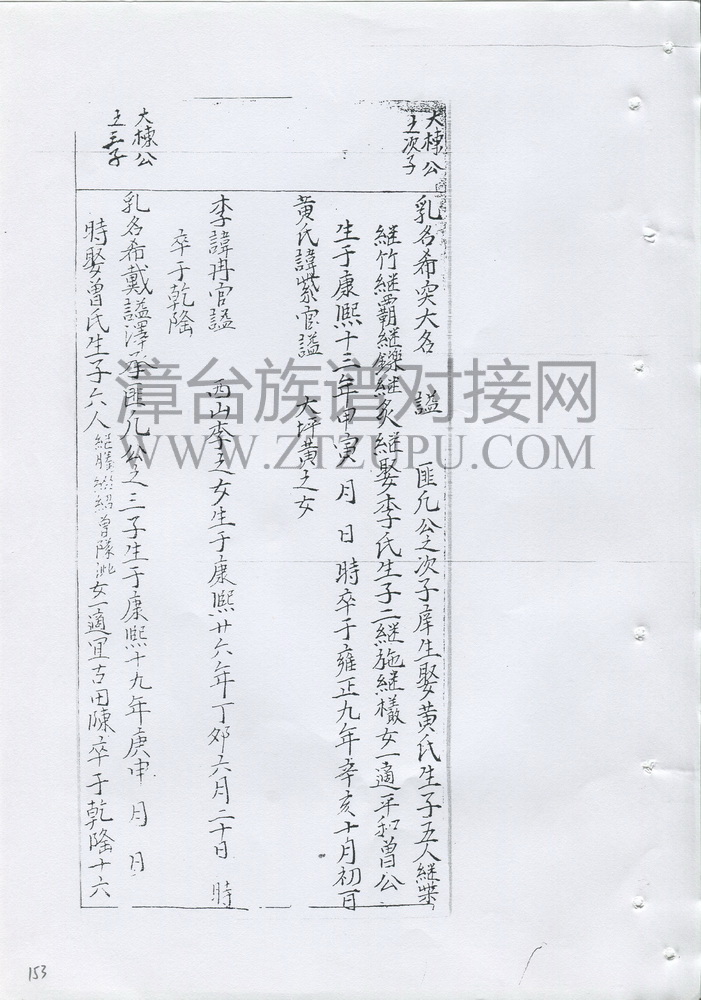 大棟公
之次子
乳名希突大名 諡 匪凢公之次子庠生娶黃氏生子五人継業
継竹継覇継鑠継炙継娶李氏生子二継施継檥女一適平和曾公
生于康熙十三年甲寅 月 日 時卒于雍正九年辛亥十月初一日
黄氏諱紫官諡 大坪黄之女
李諱冉官諡 西山李之女生于康熙廿六年丁夘六月二十日 時
卒于乾隆
大棟公
之三子
乳名希戴諡澤 匪凢公之三子生于康熙十九年庚申 月 日
時娶曾氏生子六人 継 紹 女一適宜古田陳卒于乾隆十六
漳台族谱对接网
WWW.ZTZUPU.COM
153